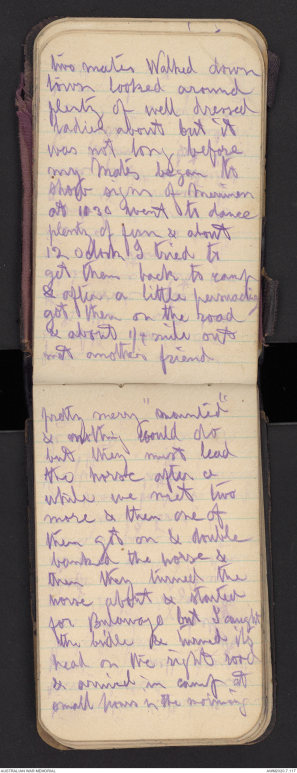 two mates Walked down
town looked around
plenty of well dressed
ladies about but it
was not long before
my mates began to
show signs of
at 1030 went to dance
plenty of fun & about
12 Oclock I tried to
get them back to camp
& after a little persuading
got them on the road
& about 1/4 mile out
met another friend
pretty merry "mounted"
& nothing would do
but they must lead
the horse after a
while we met two
more & then one of
them got on & double
banked the horse &
then they turned the
horse about & started
for Bulawayo but I caught
the bridle & turned its
head on the right road
& arrived in camp at
small hours in the morning
AUSTRALIAN WAR MEMORIAL